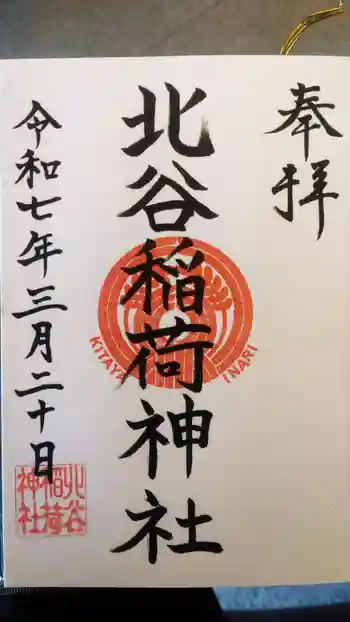 奉拝
北谷稲荷神社
KITAYA INARI
令和七年三月二十日
北谷
稲荷
神社